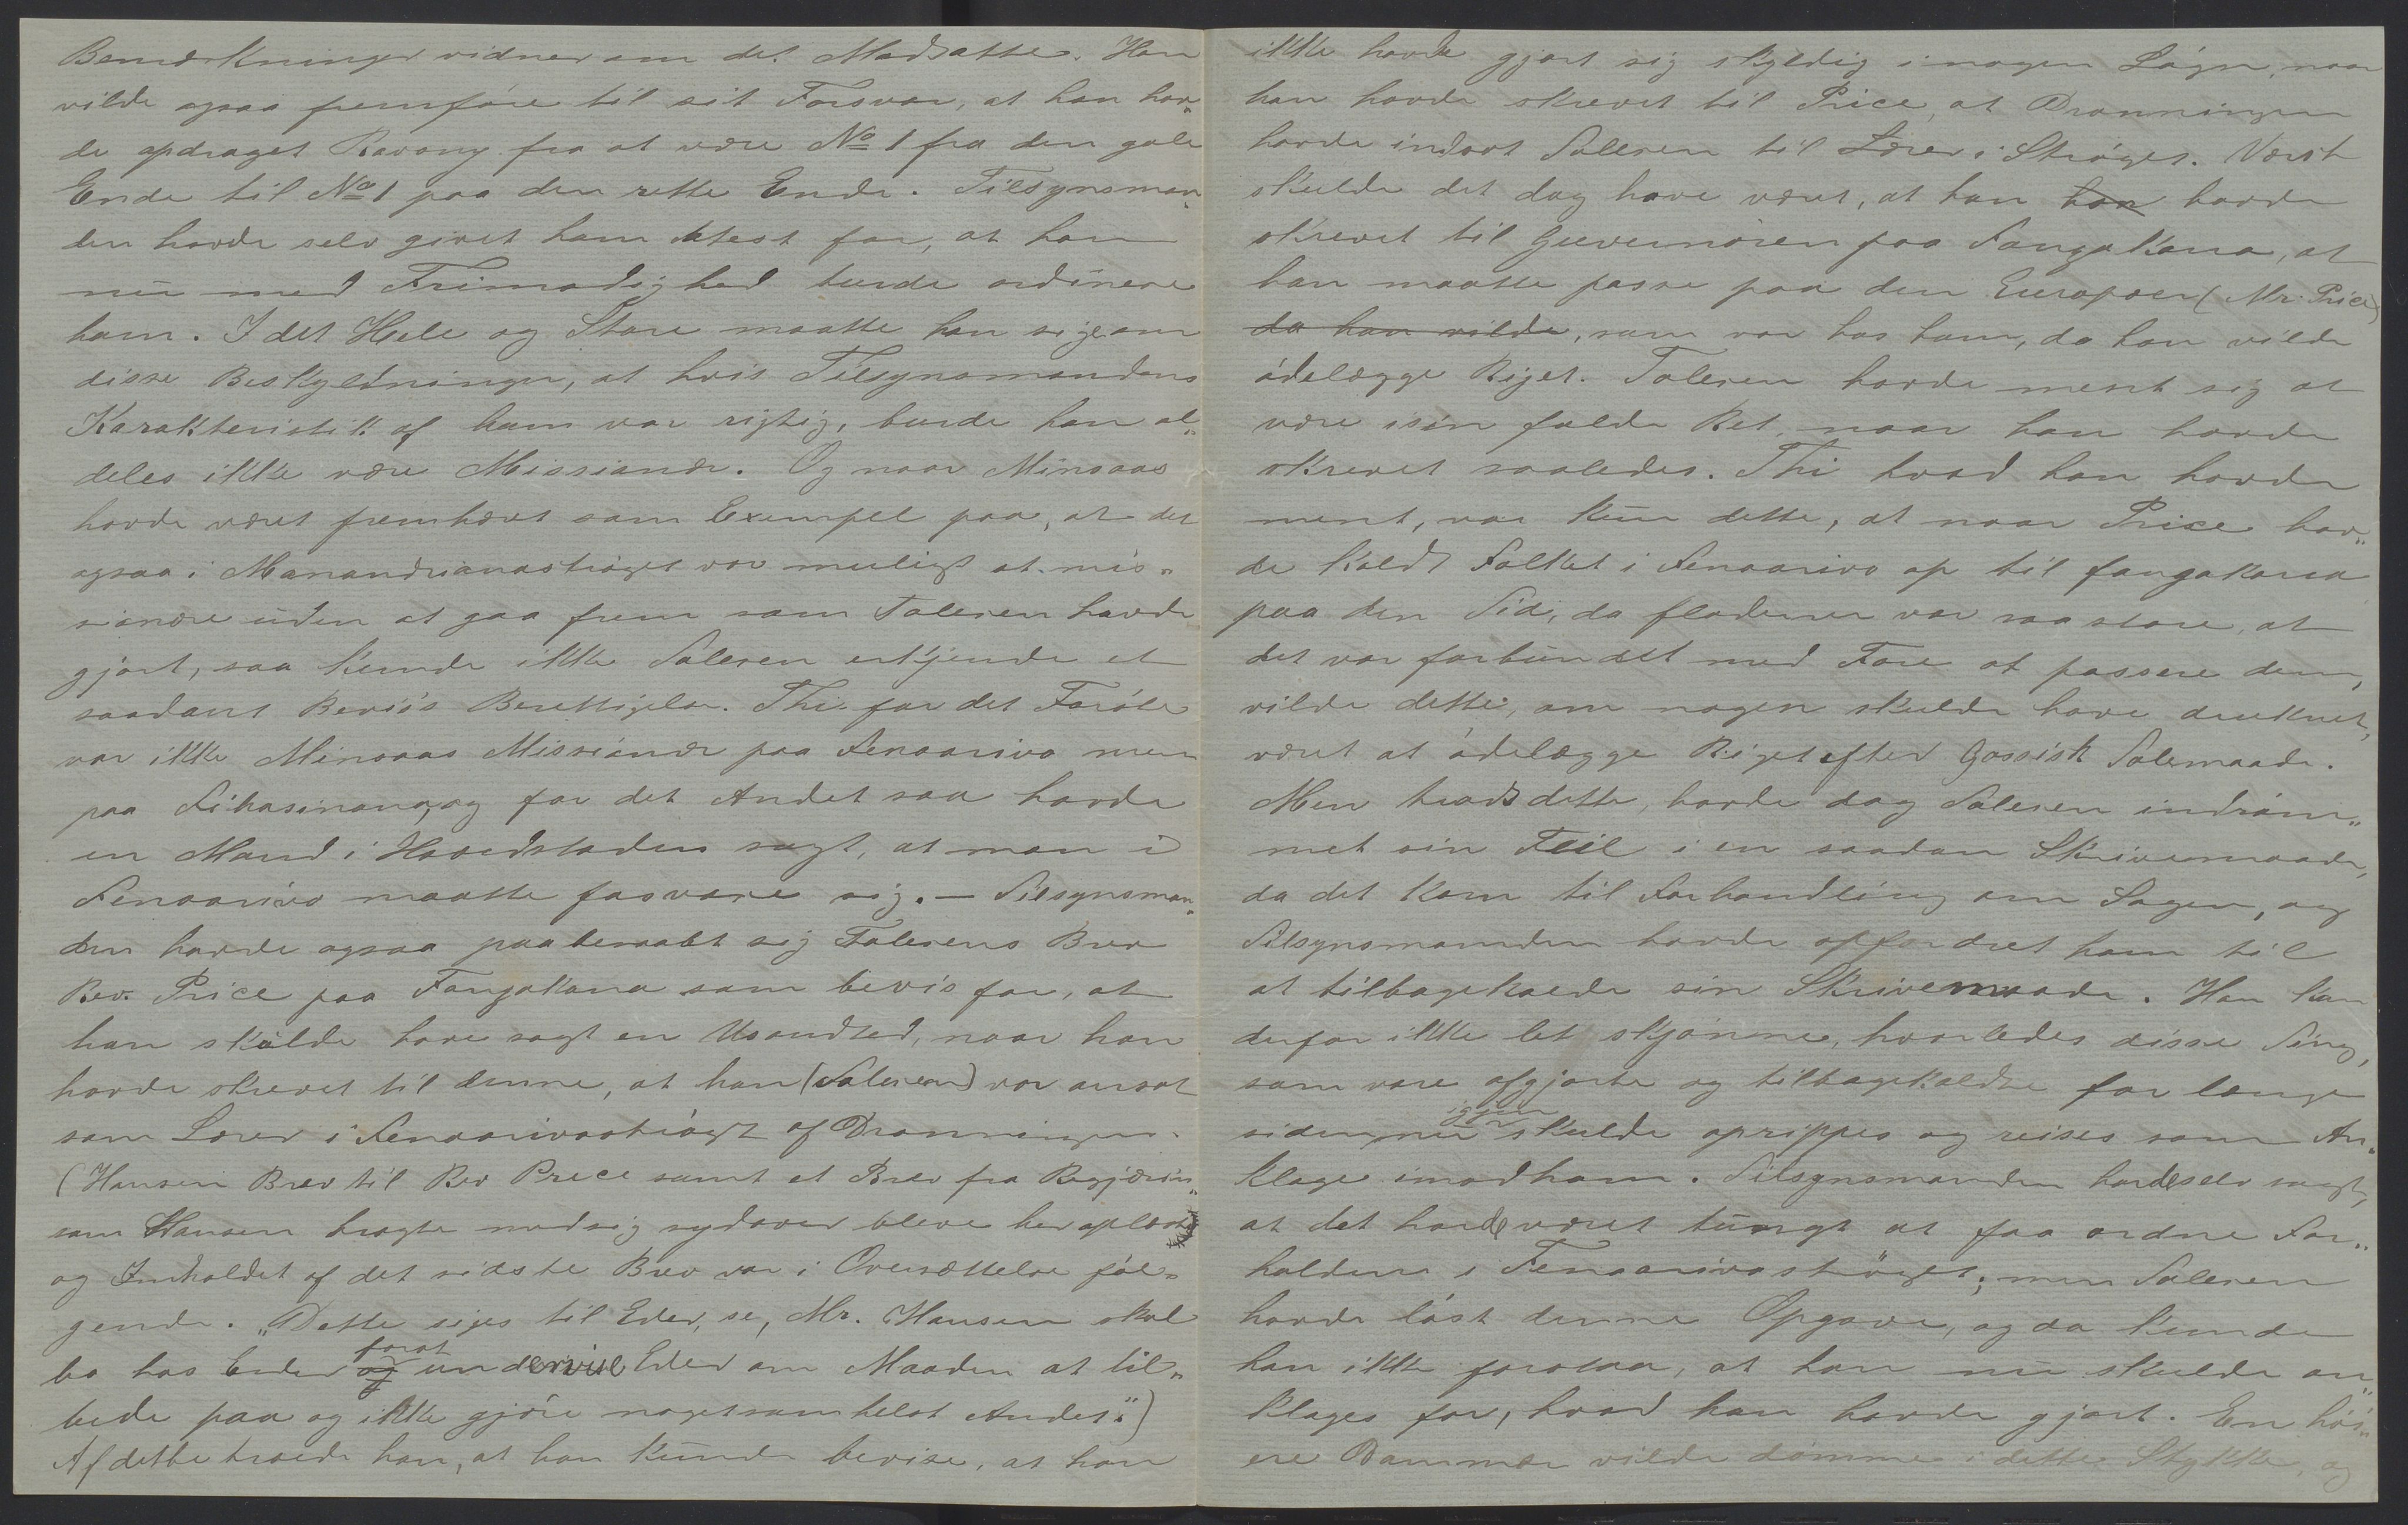 Bemærkninger vidner om det Modsatte. Han
vilde ogsaa fremføre til sit Forsvar, at han hav„
de opdraget Ravony fra at være No 1 fra den gale
Ende til No 1 paa den rette Ende. Tilsynsman„
den havde selv givet ham Attest for, at han
nu med Frimodighed turde ordinere
ham. I det Hele og Store maatte han sige om
disse Beskyldninger, at hvis Tilsynsmandens
Karakteristik af ham var rigtig, burde han al„
deles ikke være Missionær. Og naar Minsaas
havde været fremhævet som Exempel paa, at det
ogsaa i Manandrianastrøget var muligt at mis„
sionere uden at gaa frem som Taleren havde
gjort, saa kunde ikke Taleren erkjende et
saadant Beviis Berettigelse. Thi for det Første
var ikke Minsaas Missionær paa Fenoarivo men
paa Fihasinana, og for det Andet saa havde
en Mand i Hovedstaden sagt, at man i
Fenoarivo maatte forsvare sig. – Tilsynsman„
den havde ogsaa paaberaabt sig Talerens Brev
Rev. Price paa Fangakana som bevis for, at
han skulde have sagt en Usandhed, naar han
havde skrevet til denne, at han (Taleren) var ansat
som Lærer i Fenoarivostrøget af Dronningen.
(Hansen Brev til Rev Price samt et Brev fra Regjerin„
som Hansen bragte med sig sydover bleve her oplæste
og Indholdet af det sidste Brev var i Oversættelse føl„
gende. „Dette siges til Eder, se, Mr. Hansen skal
bo hos Eder og forat undervise Eder om Maaden at til„
bede paa og ikke gjøre nogetsomhelst Andet.")
Af dette troede han, at han kunde bevise, at han
ikke havde gjort sig skyldig i nogen Løgn, naar
han havde skrevet til Price, at Dronningen
havde indsat Taleren til Lærer i Strøget. Værst
skulde det dog have været, at han han havde
skrevet til Guvernøren paa Fangakana, at
han maatte passe paa den Europæer (Mr. Price)
da han vilde, som var hos ham, da han vilde
ødelægge Riget. Taleren havde ment sig at
være i sin fulde Ret, naar han havde
skrevet saaledes. Thi hvad han havde
ment, var kun dette, at naar Price hav„
de kaldt Folket i Fenoarivo op til Fangakana
paa den Tid, da floderne var saa store, at
det var forbundet med Fare at passere dem,
vilde dette, om nogen skulde have druknet,
været at ødelægge Riget efter Gassisk Talemaade.
Men trods dette, havde dog Taleren indrøm„
met sin Feil i en saadan Skrivemaade,
da det kom til Forhandling om Sagen, og
Tilsynsmanden havde opfordret ham til
at tilbagekalde sin Skrivemaade. Han kan
derfor ikke let skjønne, hvorledes disse Ting,
som vare afgjorte og tilbagekaldte for længe
siden, nu igjen skulde oprippes og reises som An„
klage imod ham. Tilsynsmanden havde selv sagt,
at det havde været tungt at faa ordne For„
holdene i Fenoarivostrøget; men Taleren
havde løst denne Opgave, og da kunde
han ikke forstaa, at han nu skulde an„
klages for, hvad han havde gjort. En høi„
ere Dommer vilde dømme i dette Stykke, og